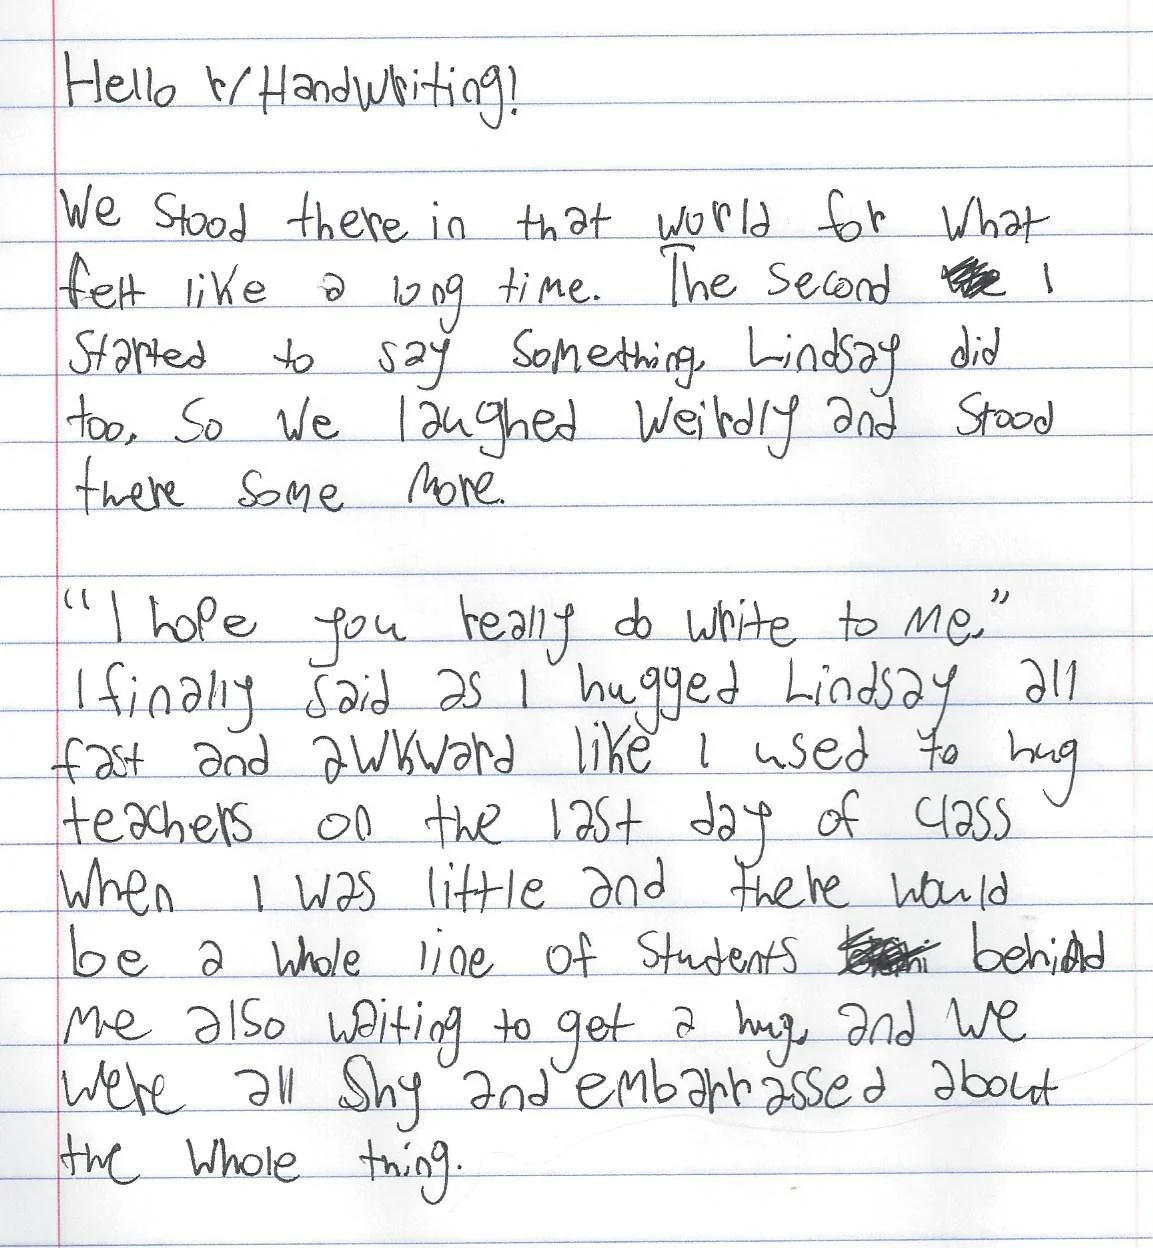 Hello r/Handwriting!
We stood there in that world for what
felt like a long time. The second I
started to say something, Lindsay did
too, so we laughed weirdly and stood
there some more.
"I hope you really do write to me,"
I finally said as I hugged Lindsay all
fast and awkward like I used to hug
teachers on the last day of class
when I was little and there would
be a whole line of students behind
me also waiting to get a hug, and we
were all shy and embarrassed about
the whole thing.